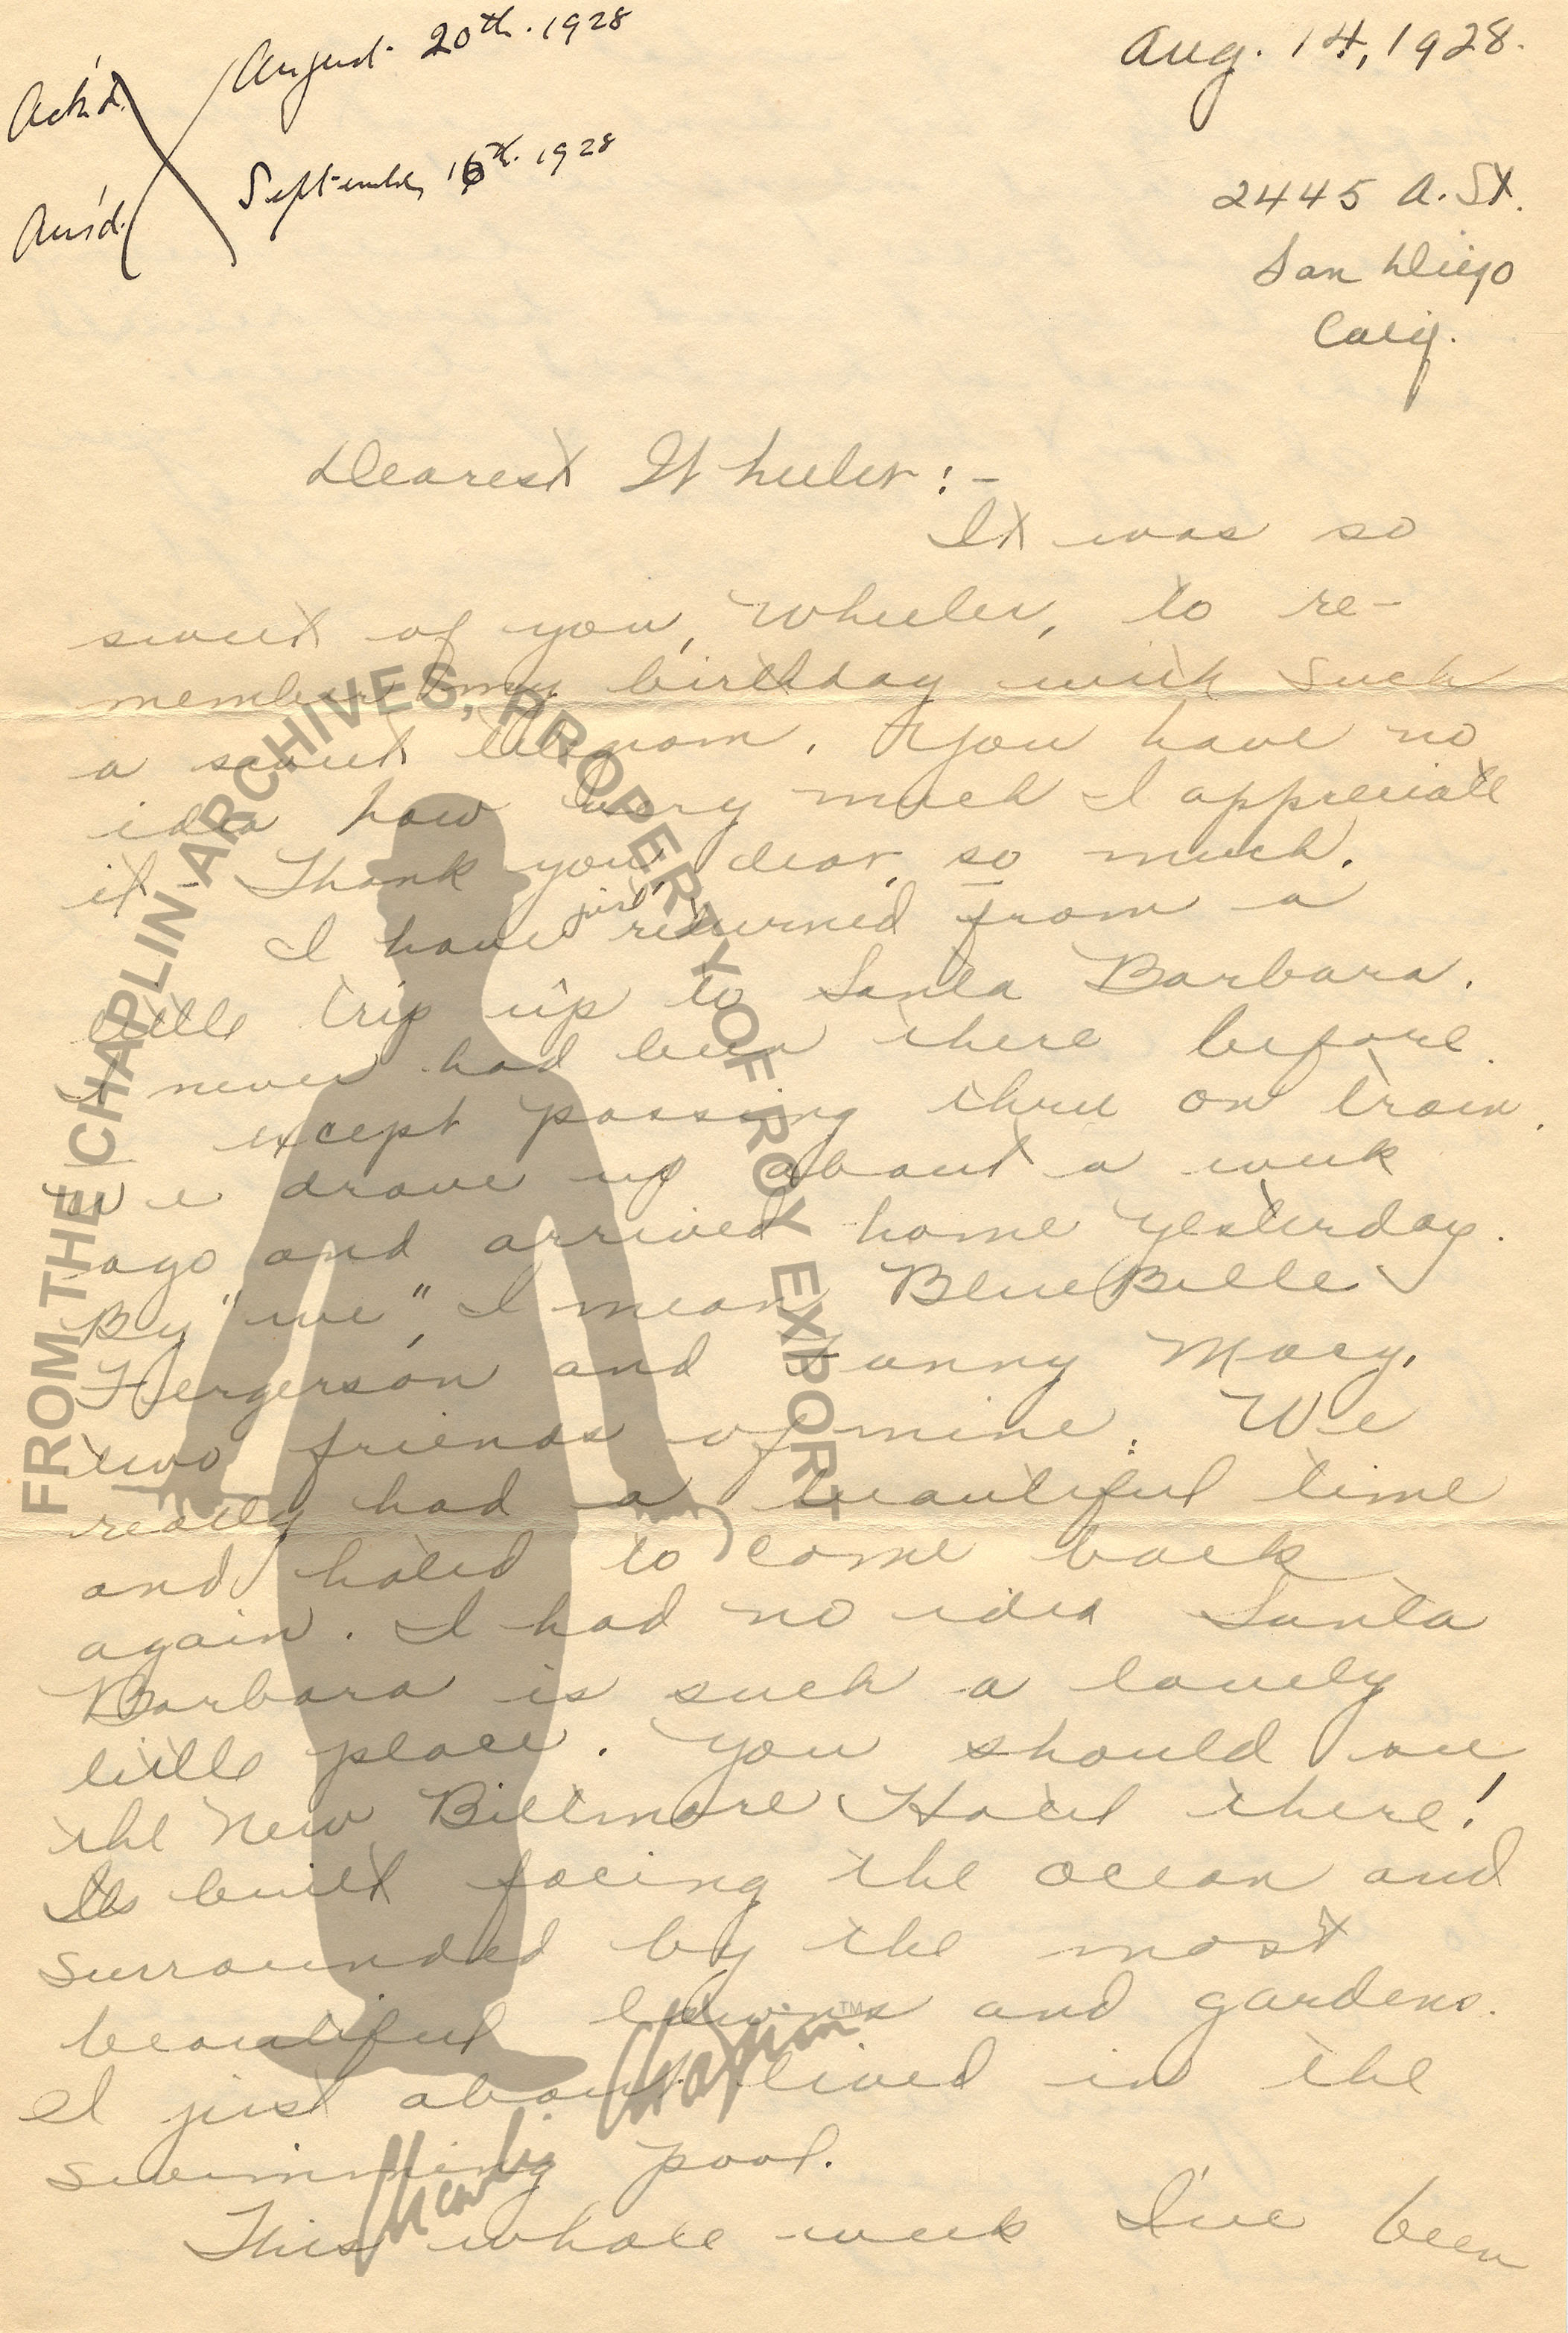 Ack'd. August 20th. 1928
Ans'd. September 16th. 1928
Aug. 14, 1928.
2445 A. St.
San Diego
Calif.
Dearest Wheeler:-
It was so
sweet of you, Wheeler, to re-
member my birthday with such
a sweet telegram. You have no
idea how very much I appreciate
it. Thank you, dear, so much.
I have just returned from a
little trip up to Santa Barbara.
I never had been there before
except passing thru on train.
We drove up about a week
ago and arrived home yesterday.
By "we", I mean BlueBelle
Hergerson and Fanny Macy,
two friends of mine. We
really had a beautiful time
and hated to come back
again. I had no idea Santa
Barbara is such a lovely
little place. You should see
the New Biltmore Hotel there!
Its built facing the ocean and
surrounded by the most
beautiful lawns and gardens.
I just about lived in the
swimming pool.
This whole week I've been
FROM THE CHAPLIN ARCHIVES, PROPERTY OF ROY EXPORT
Charlie Chaplin™